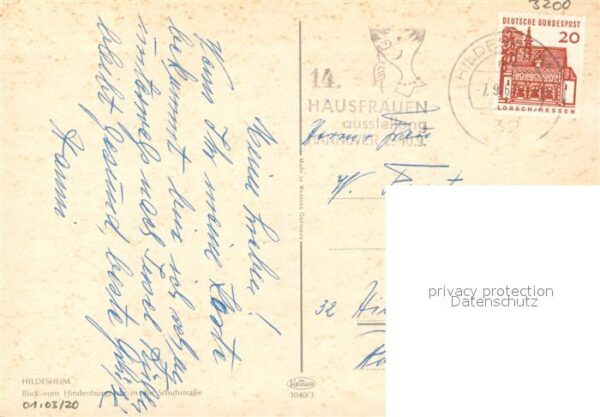 Meine Lieben!
Wenn Ihr meine Karte
bekommt bin ich schon
unterwegs nach Insel
bleibt gesund, beste Grüße
Hanni
HILDESHEIM
Blick vom Hindenburgplatz in die Schuhstraße
01.03/20
Made in Western Germany
Krüger
1040/3
3200
DEUTSCHE BUNDESPOST
20
LORSCH/HESSEN
HILDES
7.9.6
32
14.
HAUSFRAUEN
ausstellung
HANNOVER
10.9.
Herrn
W.
32 Hi
privacy protection
Datenschutz